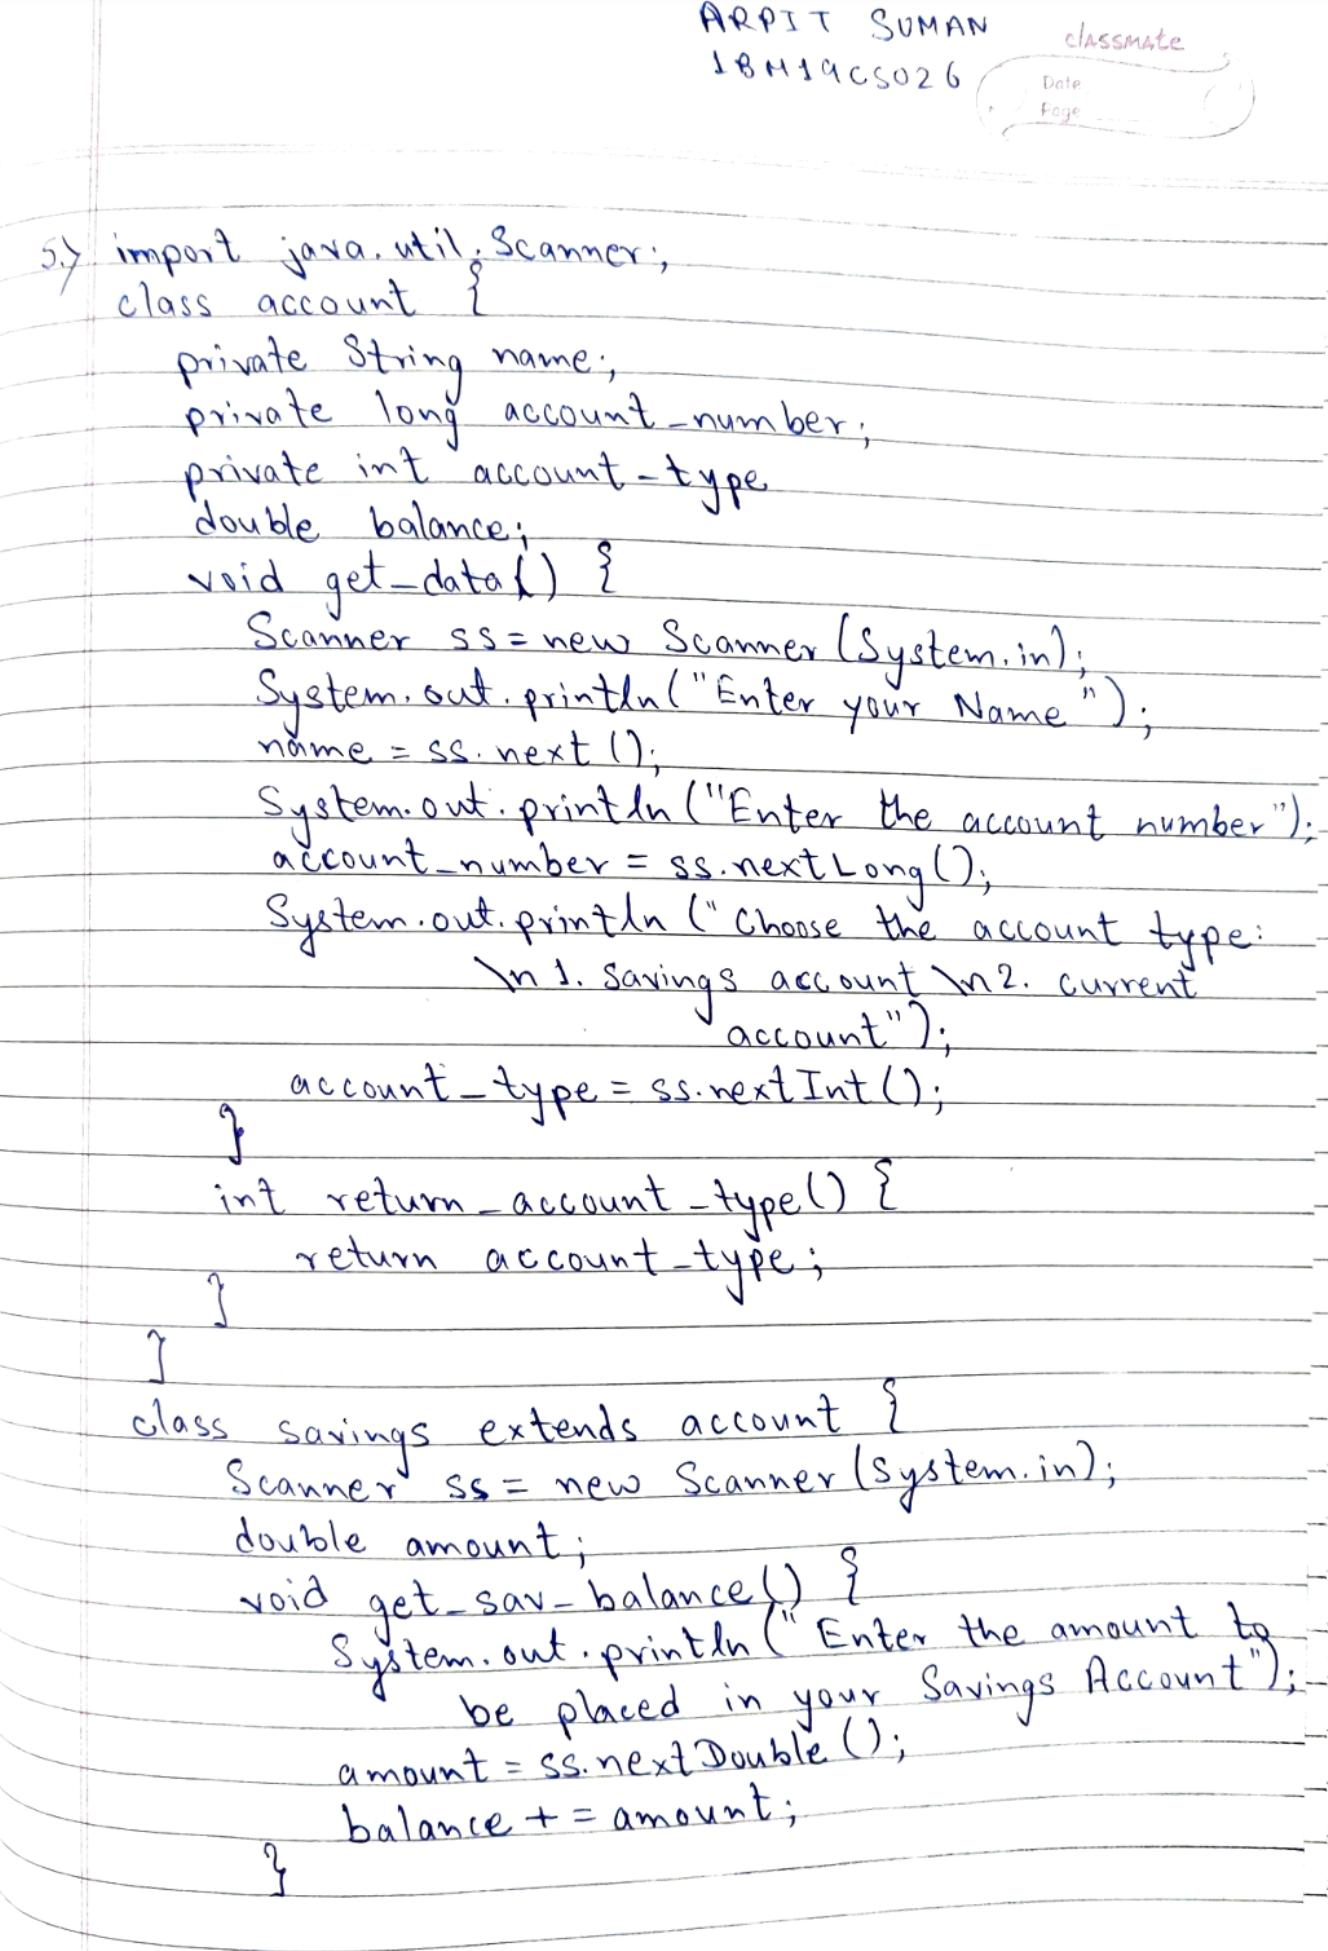 ARPIT SUMAN
1BM19CS026
classmate
Date
Page
5.) import java.util.Scanner;
class account {
private String name;
private long account_number;
private int account_type
double balance;
void get_data() {
Scanner ss = new Scanner (System.in);
System.out.println("Enter your Name");
name = ss.next();
System.out.println("Enter the account number");
account_number = ss.nextLong();
System.out.println("Choose the account type:
\n 1. Savings account \n2. current
account");
account_type = ss.nextInt();
}
int return_account_type() {
return account_type;
}
}
class savings extends account {
Scanner ss = new Scanner (System.in);
double amount;
void get_sav_balance() {
System.out.println("Enter the amount to
be placed in your Savings Account");
amount = ss.nextDouble();
balance += amount;
}